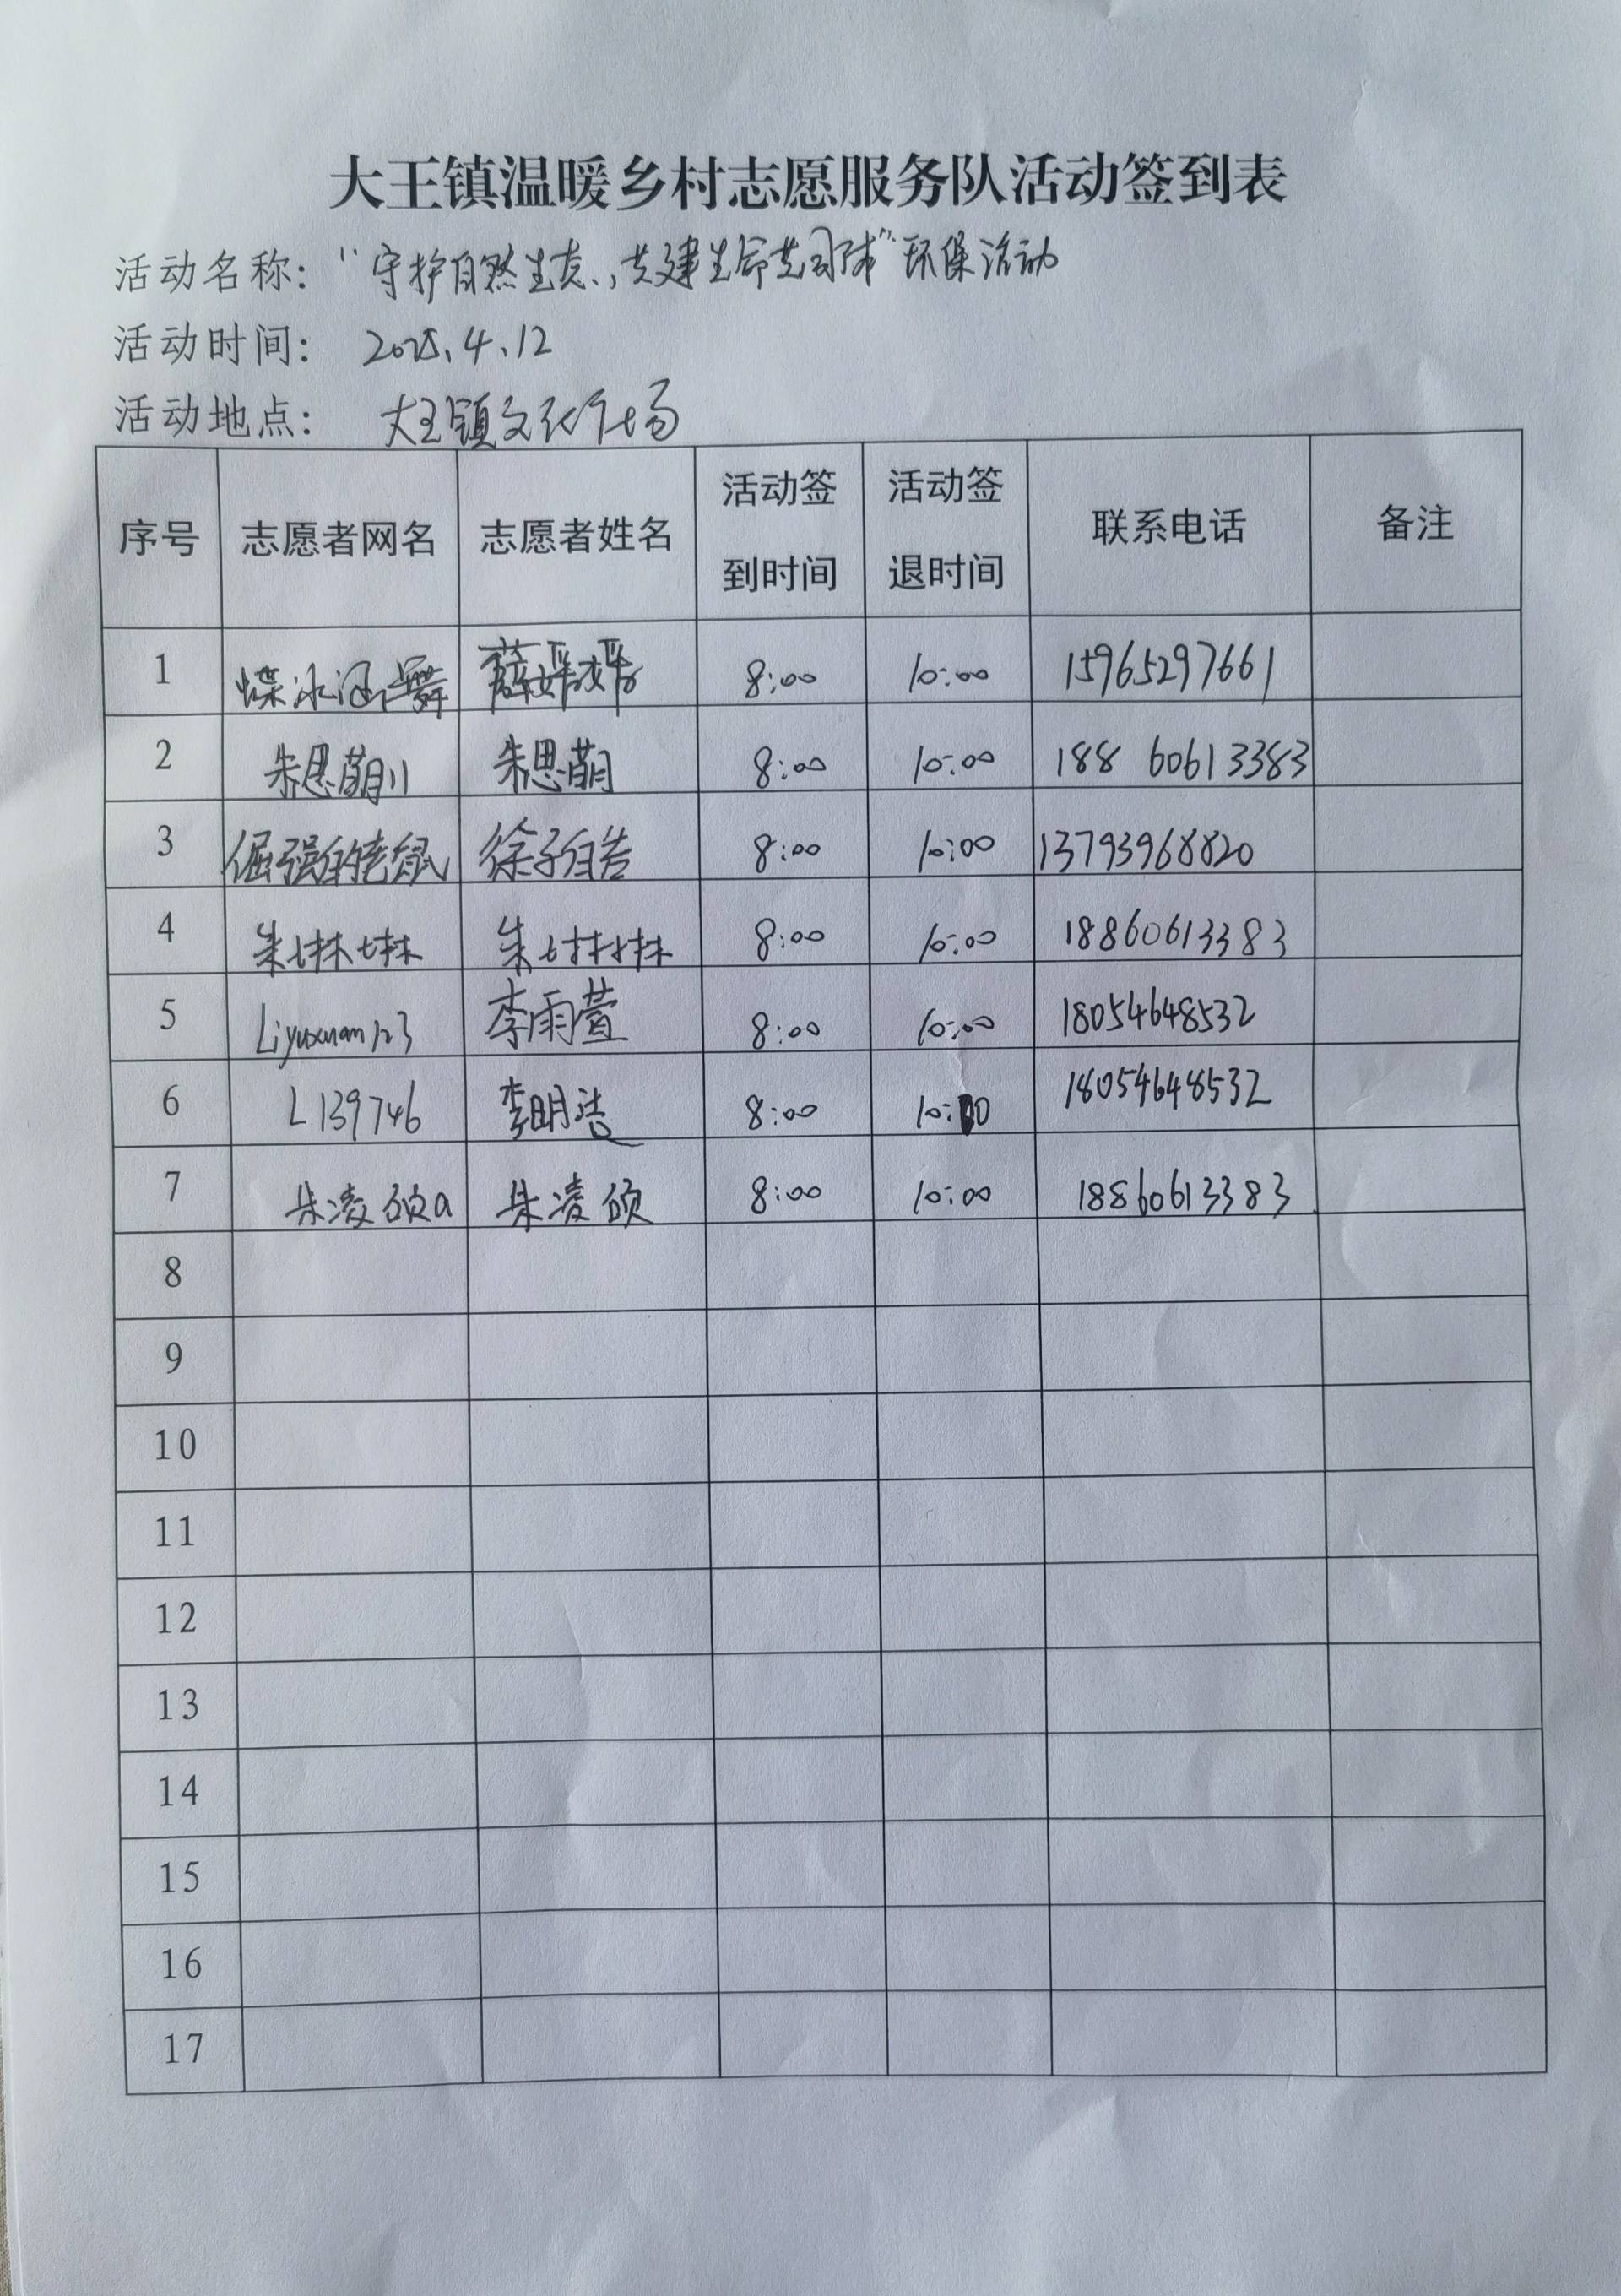 大王镇温暖乡村志愿服务队活动签到表
活动名称: “守护自然生态，共建生命共同体”环保活动
活动时间: 2025.4.12
活动地点: 大王镇文化广场
序号 志愿者网名 志愿者姓名 活动签到时间 活动签退时间 联系电话 备注
1 蝶冰 舞 薛媛媛 8:00 10:00 15965297661
2 朱思萌11 朱思萌 8:00 10:00 18860613383
3 倔强的老鼠 徐子 8:00 10:00 13793968820
4 朱琳琳 朱琳琳 8:00 10:00 18860613383
5 Liyuxuan123 李雨萱 8:00 10:00 18054648532
6 L139746 李明浩 8:00 10:00 18054648532
7 朱凌硕a 朱凌硕 8:00 10:00 18860613383
8
9
10
11
12
13
14
15
16
17